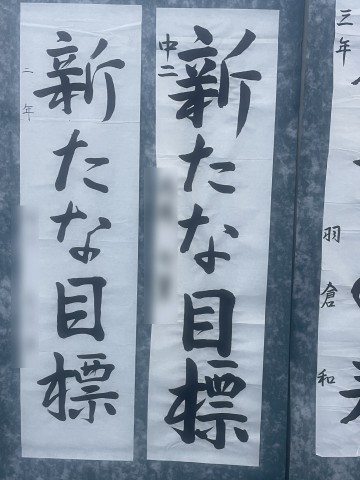 三年
羽倉和
新たな目標
中二
新たな目標
二年